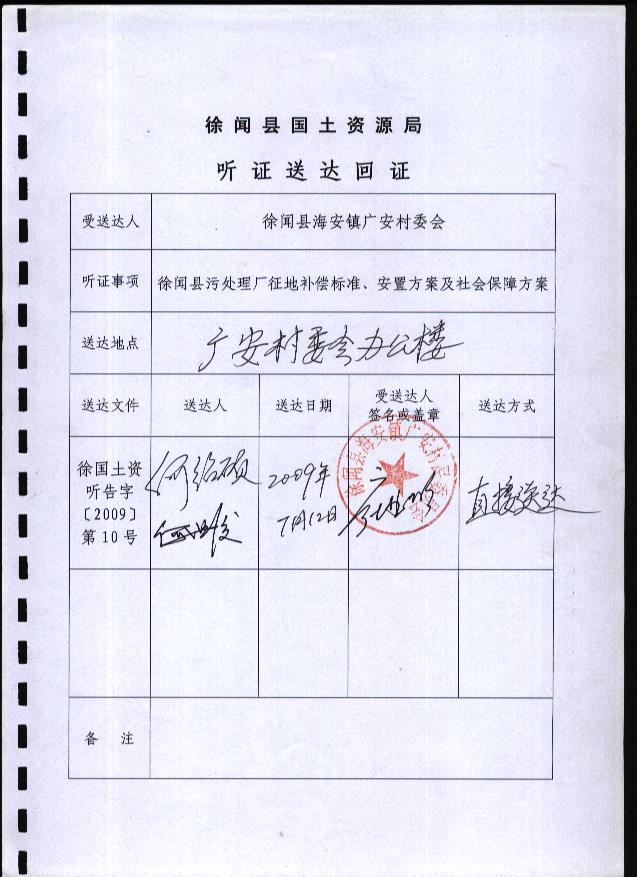 徐闻县国土资源局
听证送达回证
受送达人 徐闻县海安镇广安村委会
听证事项 徐闻县污处理厂征地补偿标准、安置方案及社会保障方案
送达地点 广安村委会办公楼
送达文件 送达人 送达日期 受送达人签名或盖章 送达方式
徐国土资
听告字
〔2009〕
第10号
2009年
7月12日
直接送达
徐闻县海安镇广安村民委员会
备 注